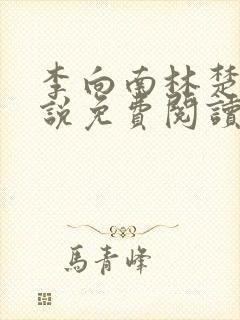 李向南林楚
說免費閱讀
馬青峰